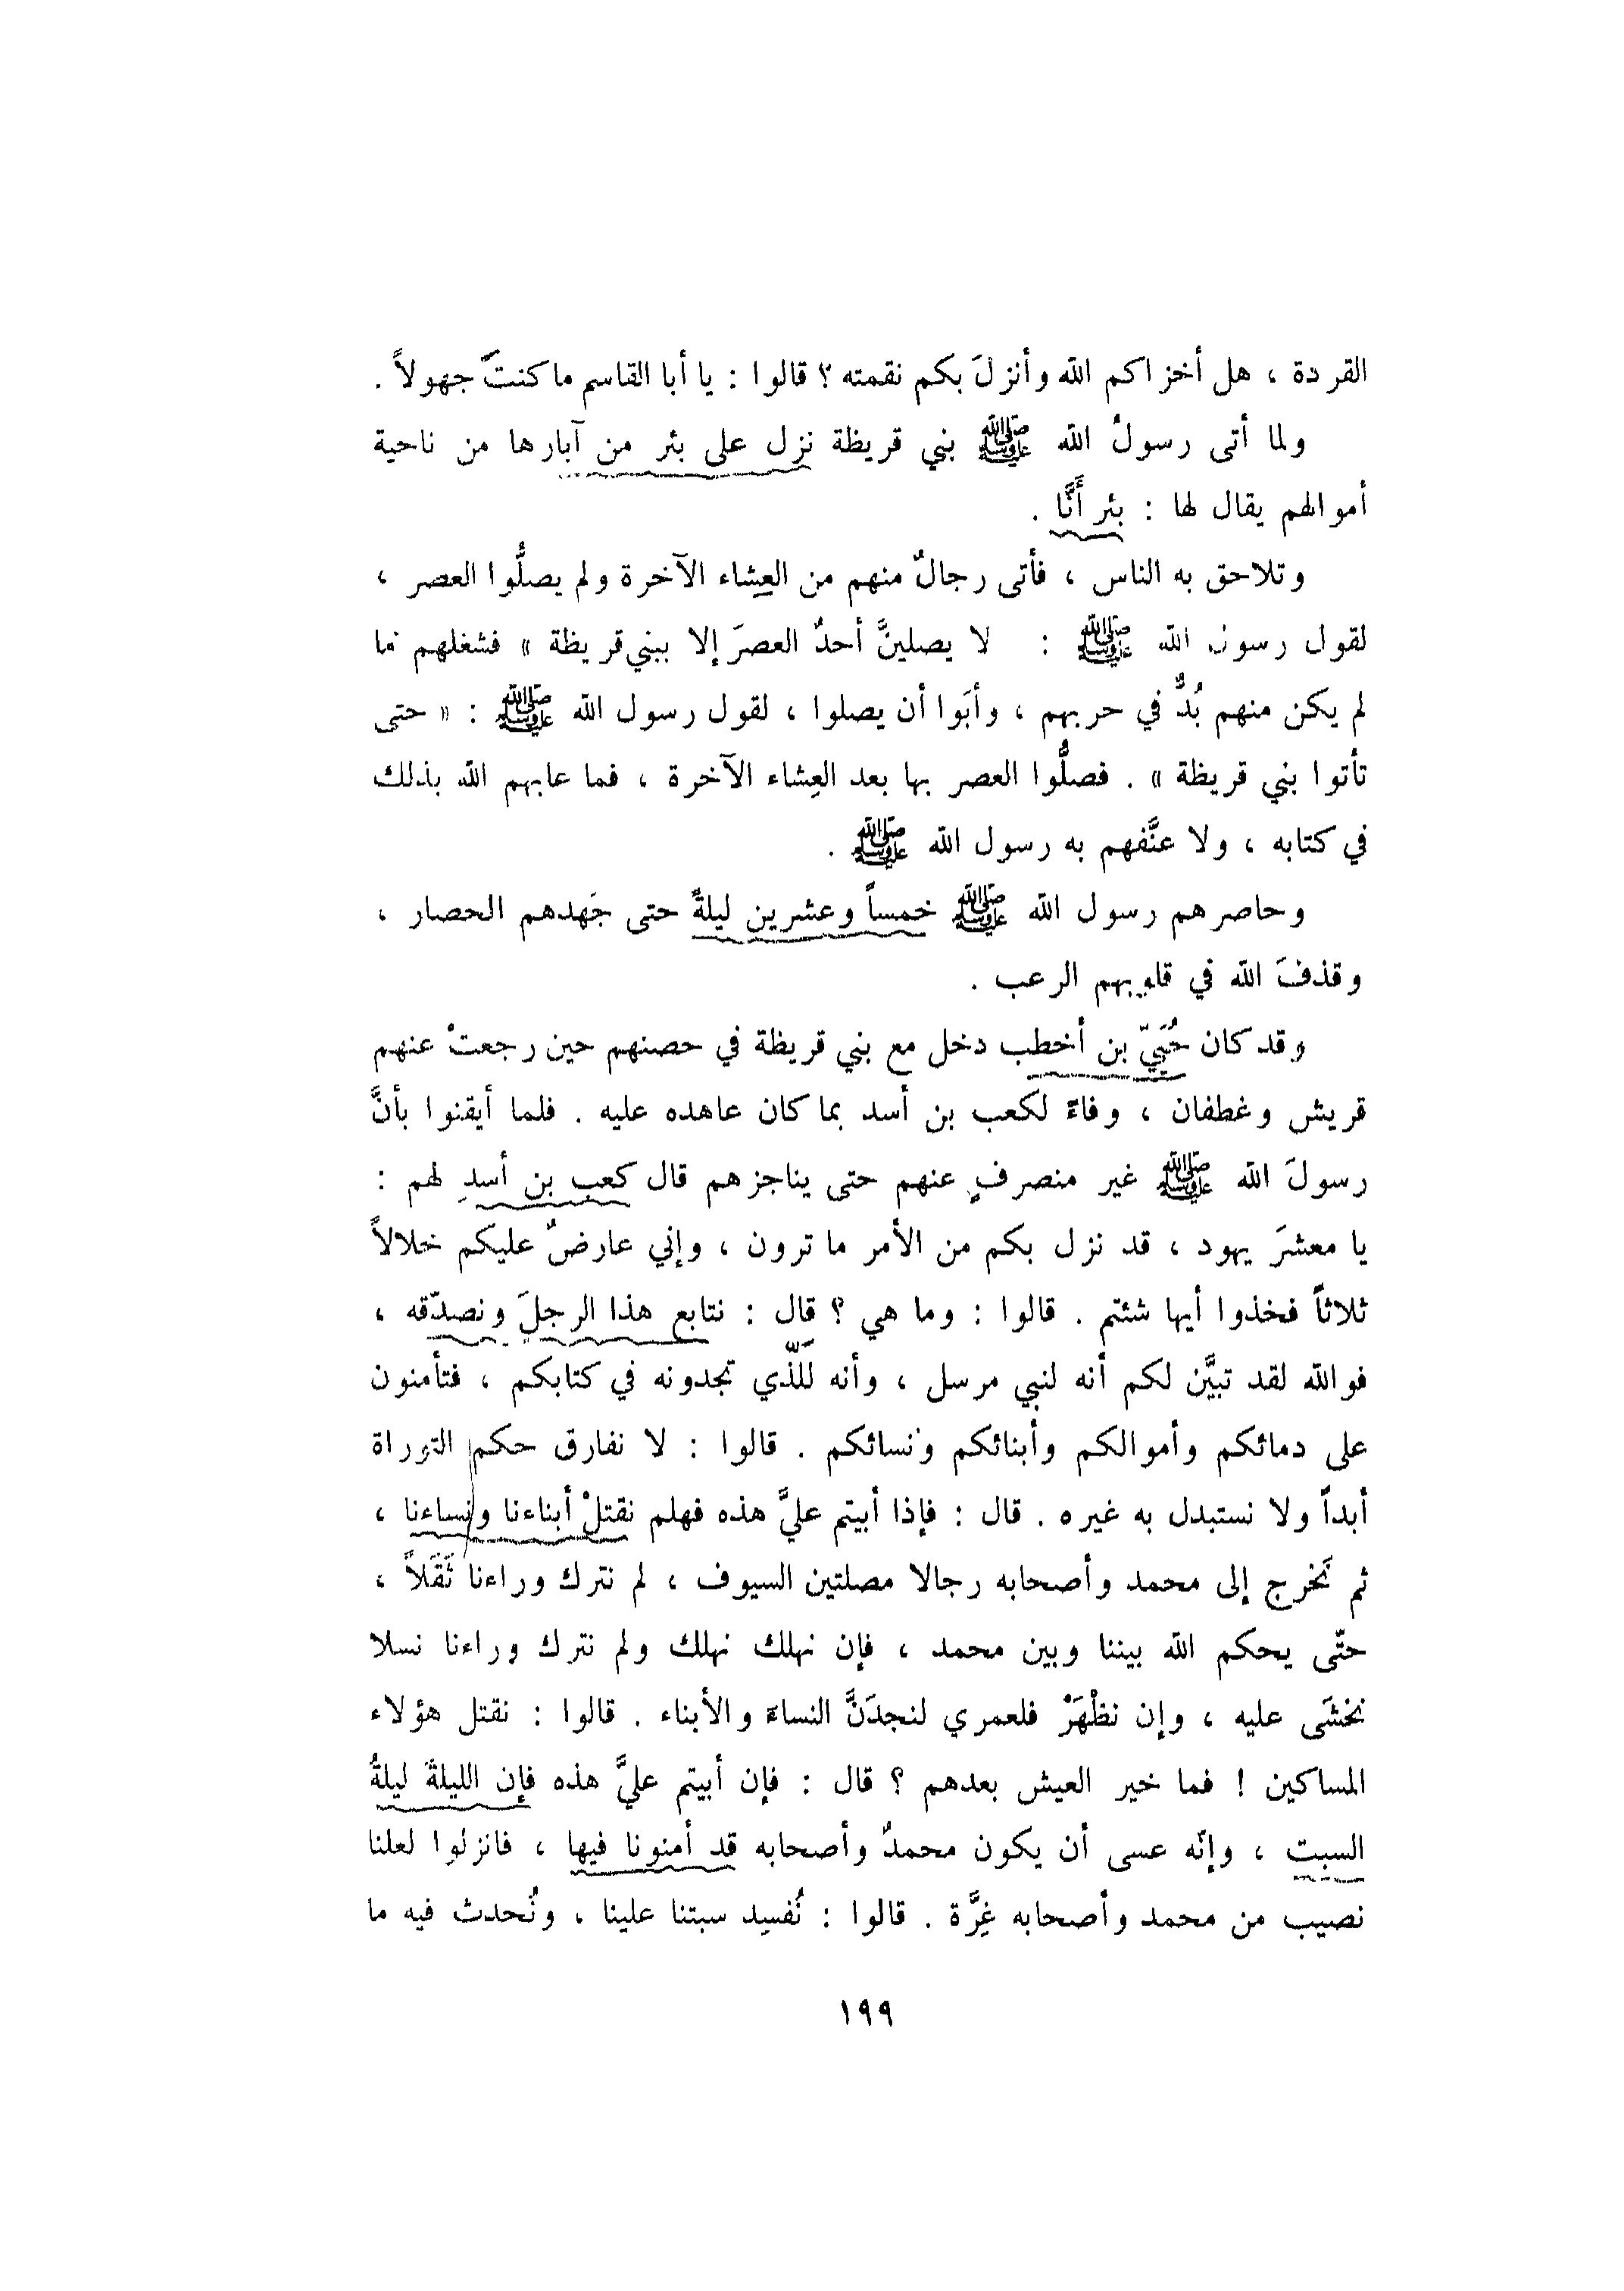 القردة ، هل أخزاكم الله وأنزلَ بكم نقمته ؟ قالوا : يا أبا القاسم ما كنتَ جهولاً .
ولما أتى رسولُ الله ﷺ بني قريظة نزل على بئر من آبارها من ناحية
أموالهم يقال لها : بئر أَنَّا .
وتلاحق به الناس ، فأتى رجالٌ منهم من العِشاء الآخرة ولم يصلُّوا العصر ،
لقول رسول الله ﷺ : لا يصلينَّ أحدٌ العصرَ إلا ببني قريظة » فشغلهم ما
لم يكن منهم بُدٌّ في حربهم ، وأبَوا أن يصلوا ، لقول رسول الله ﷺ : « حتى
تأتوا بني قريظة » . فصلُّوا العصر بها بعد العِشاء الآخرة ، فما عابهم الله بذلك
في كتابه ، ولا عنَّفهم به رسول الله ﷺ .
وحاصرهم رسول الله ﷺ خمساً وعشرين ليلةً حتى جَهدهم الحصار ،
وقذفَ الله في قلوبهم الرعب .
وقد كان حُيَيّ بن أخطب دخل مع بني قريظة في حصنهم حين رجعتْ عنهم
قريش وغطفان ، وفاءً لكعب بن أسد بما كان عاهده عليه . فلما أيقنوا بأنَّ
رسولَ الله ﷺ غير منصرفٍ عنهم حتى يناجزهم قال كعب بن أسدِ لهم :
يا معشرَ يهود ، قد نزل بكم من الأمر ما ترون ، وإني عارضٌ عليكم خلالاً
ثلاثاً فخذوا أيها شئتم . قالوا : وما هي ؟ قال : نتابع هذا الرجلَ ونصدّقه ،
فوالله لقد تبيَّن لكم أنه لنبي مرسل ، وأنه لَلّذي تجدونه في كتابكم ، فتأمنون
على دمائكم وأموالكم وأبنائكم ونسائكم . قالوا : لا نفارق حكم التوراة
أبداً ولا نستبدل به غيره . قال : فإذا أبيتم عليَّ هذه فهلم نقتلْ أبناءنا ونساءنا ،
ثم نَخرج إلى محمد وأصحابه رجالا مصلتين السيوف ، لم نترك وراءنا ثَقَلاً ،
حتّى يحكم الله بيننا وبين محمد ، فإن نهلك نهلك ولم نترك وراءنا نسلا
نخشَى عليه ، وإن نظْهَرْ فلعمري لنجدَنَّ النساءَ والأبناء . قالوا : نقتل هؤلاء
المساكين ! فما خير العيش بعدهم ؟ قال : فإن أبيتم عليَّ هذه فإن الليلةَ ليلةُ
السبت ، وإنّه عسى أن يكون محمدٌ وأصحابه قد أمنونا فيها ، فانزلوا لعلنا
نصيب من محمد وأصحابه غِرَّة . قالوا : نُفسِد سبتنا علينا ، ونُحدث فيه ما
١٩٩